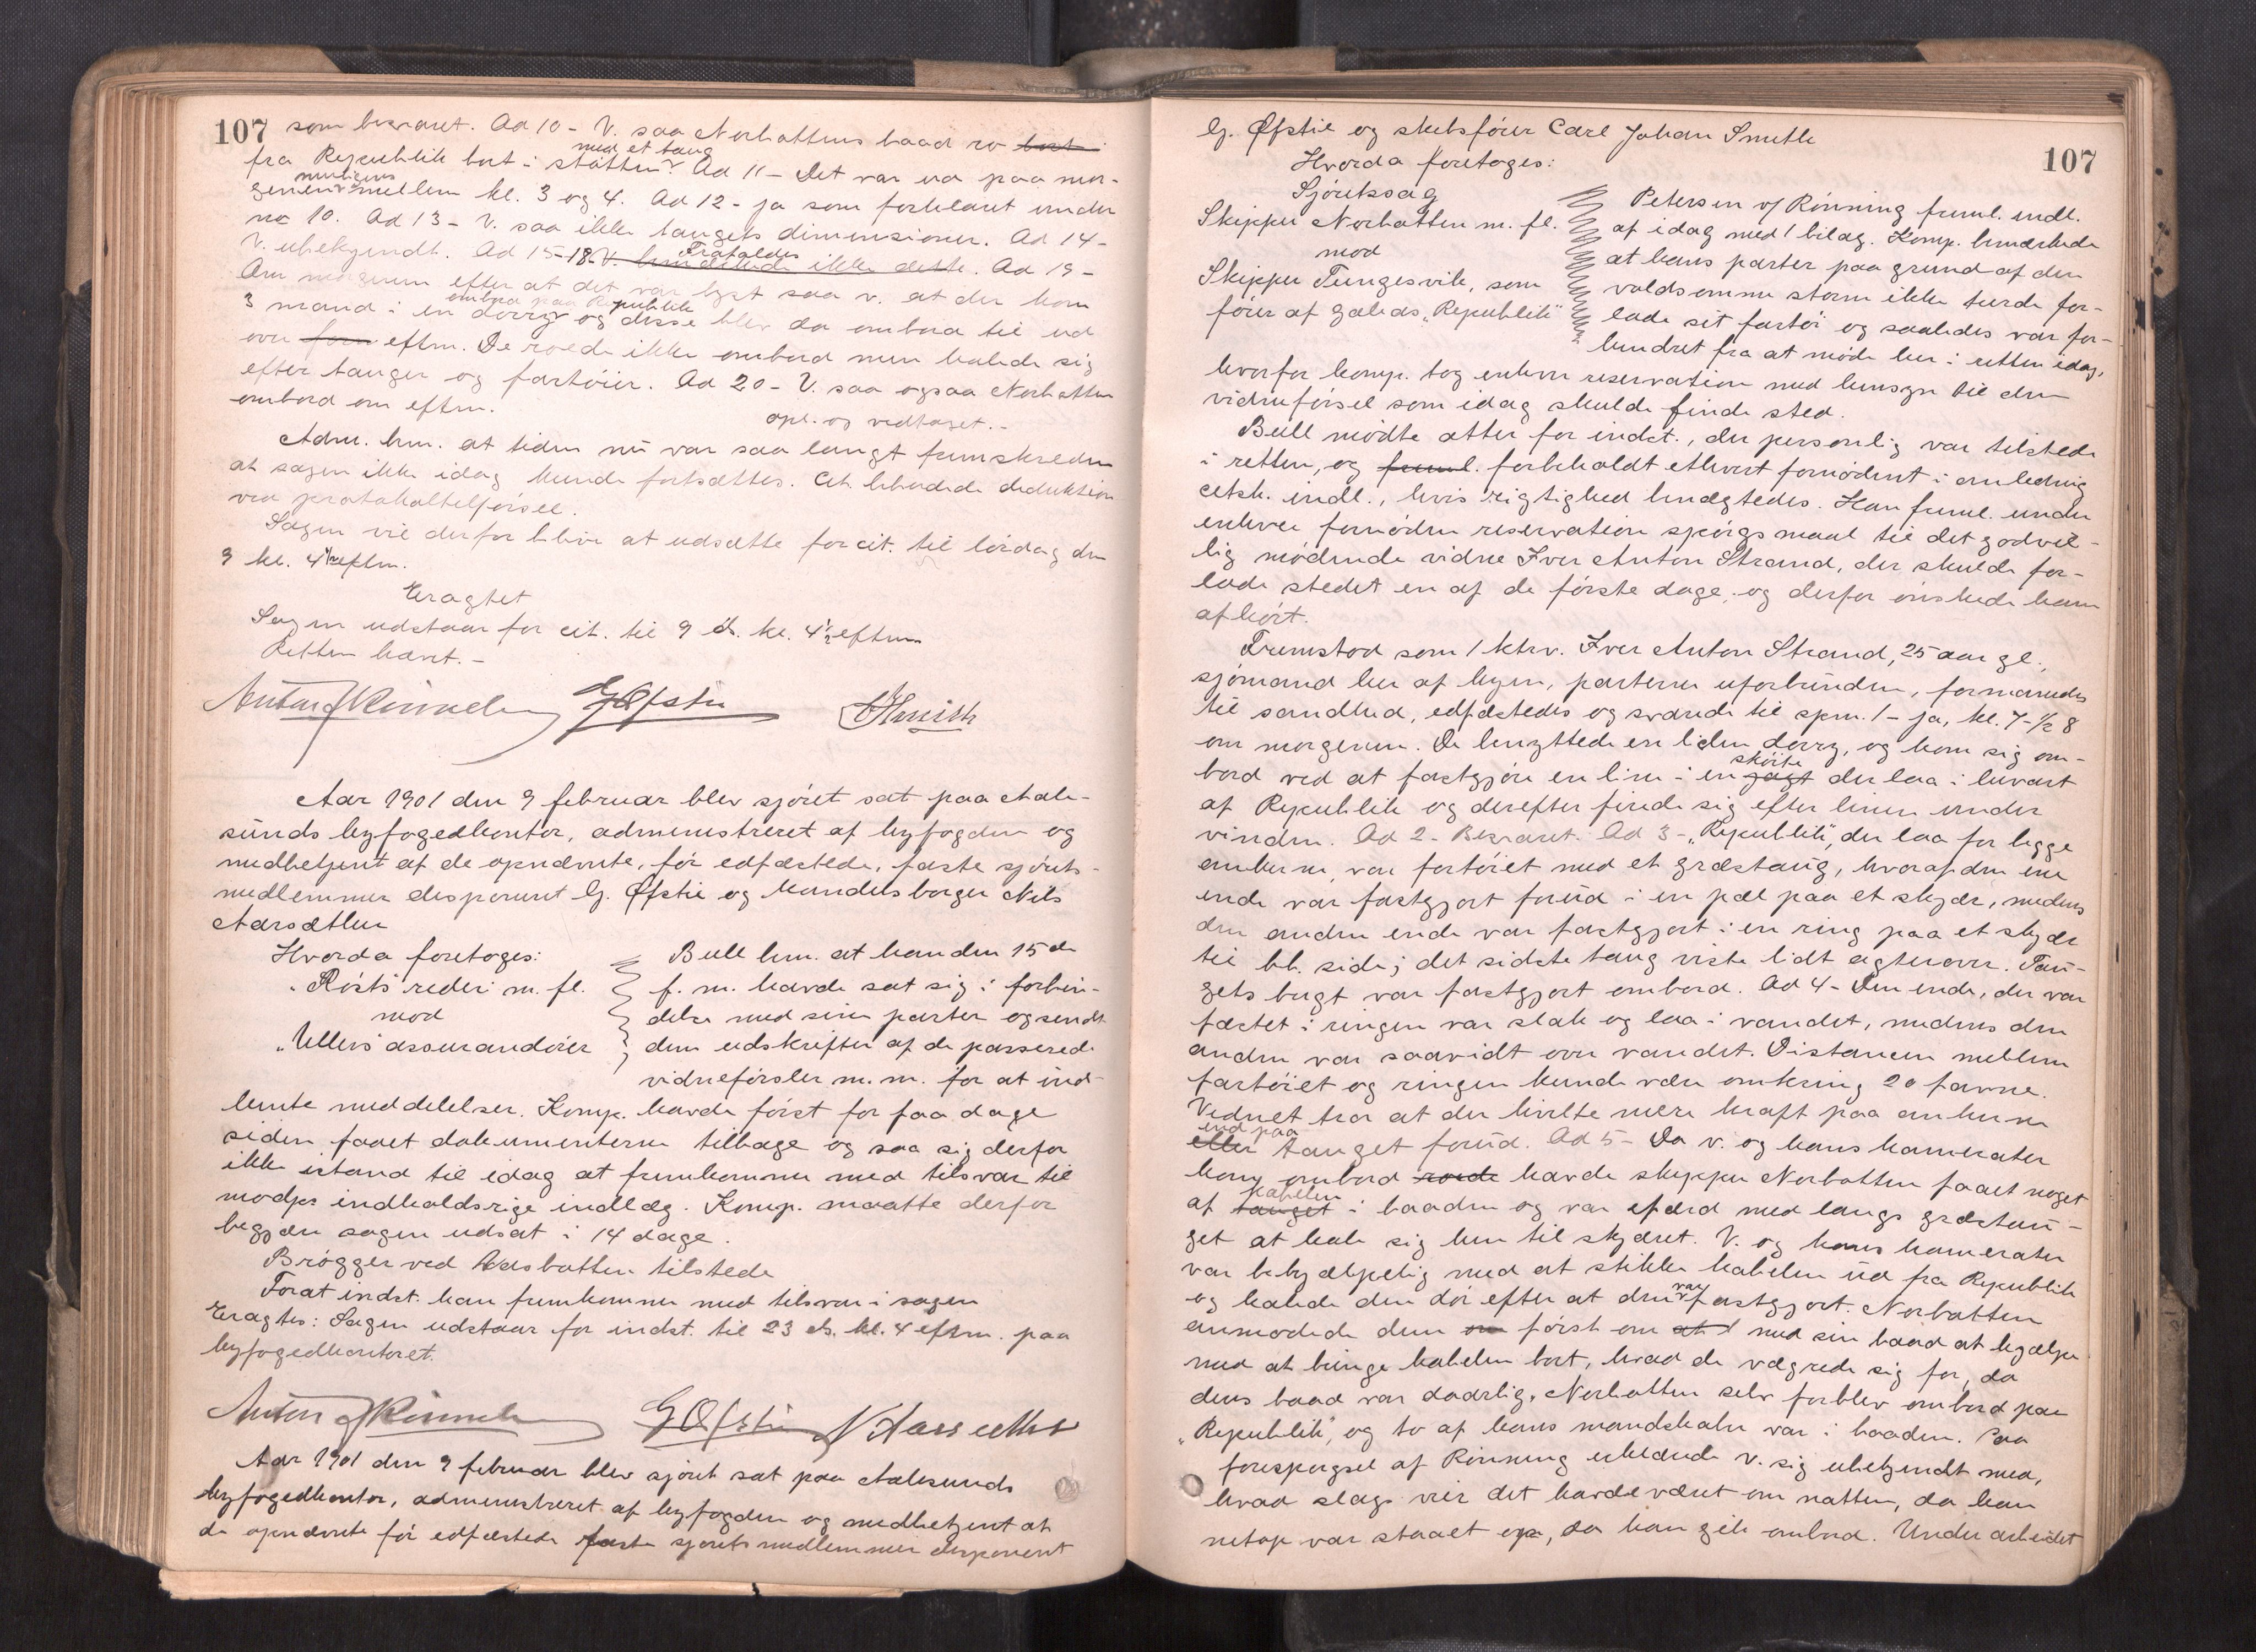 107 som besvaret. Ad 10 - V. saa Norbottens baad ro bort
fra Republik bort i støtten med et taug. Ad 11 - Det var ud paa mor-
genen muligens mellem kl. 3 og 4. Ad 12 - ja som forklaret under
no 10. Ad 13 - V. saa ikke taugets dimensioner. Ad 14 -
V. ubekjendt. Ad 15-18 - Frafaldes V. ikke dette. Ad 19 -
Om morgenen efter at det var lyst saa v. at der kom
3 mand i en dorry ombord paa Republik og disse blev da ombord til ud
over form eftm. De roede ikke ombord men halede sig
efter tauger og fartøier. Ad 20 - V. saa ogsaa Norbotten
ombord om eftm.
opl. og vedtaget. -
Adm. bem. at tiden nu var saa langt fremskreden
at sagen ikke idag kunde fortsættes. Cit. bebudede deduktion
ved protokoltilførsel.
Sagen vil derfor blive at udsætte for cit. til lørdag den
9 kl. 4½ eftm.
Eragtet
Sagen udstaar for cit. til 9 ds. kl. 4½ eftm.
Retten hævet. -
GØfsti
Aar 1901 den 9 februar blev sjøret sat paa Aale-
sunds byfogedkontor, administreret af byfogden og
medbetjent af de opnævnte, før edfæstede, faste sjørets-
medlemmer disponent G. Øfstie og handelsborger Nils
Aarsæther
Hvorda foretoges:
"Røsts" rederi m. fl.
mod
"Ullers" assurandører
Bull bem. at han den 15 de
f. m. havde sat sig i forbin-
delse med sine parter og sendt
dem udskrifter af de passerede
vidneførsler m. m. for at ind-
hente meddelelser. Komp. havde først for faa dage
siden faaet dokumenterne tilbage og saa sig derfor
ikke istand til idag at fremkomme med tilsvar til
modps indholdsrige indlæg. Komp. maatte derfor
begjære sagen udsat i 14 dage.
Brøgger ved Aasbotten tilstede
Forat indst. kan fremkomme med tilsvar i sagen
Eragtes: Sagen udstaar for indst. til 23 ds. kl. 4 eftm. paa
byfogedkontoret.
GØfsti N Aarsæther
Aar 1901 den 9 februar blev sjøret sat paa Aalesunds
byfogedkontor, administreret af byfogden og medbetjent af
de opnævnte før edfæstede faste sjøretsmedlemmer disponent
G. Øfstie og skibsfører Carl Johan Smith
107
Hvorda foretoges:
Sjøretssag
Skipper Norbotten m. fl.
mod
Skipper Tungesvik, som
fører af galeas "Republik"
Petersen v/ Rønning freml. indl.
af idag med 1 bilag. Komp. bemærkede
at hans parter paa grund af den
voldsomme storm ikke turde for-
lade sit fartøi og saaledes var for-
hindret fra at møde her i retten idag,
hvorfor komp. tog enhver reservation med hensyn til den
vidneførsel som idag skulde finde sted.
Bull mødte atter for indst., der personlig var tilstede
i retten, og freml. forbeholdt ethvert fornødent i anledning
citsk. indl., hvis rigtighed benægtedes. Han freml. under
enhver fornøden reservation spørgsmaal til det godvil-
lig mødende vidne Iver Anton Strand, der skulde for-
lade stedet en af de første dage, og derfor ønskede ham
afhørt.
Fremstod som 1 ktrv. Iver Anton Strand, 25 aar gl.,
sjømand her af byen, parterne uforbunden, formanedes
til sandhed, edfæstedes og svarede til spm. 1 - ja, kl. 7-½ 8
om morgenen. De benyttede en liden dorry, og kom sig om-
bord ved at fastgjøre en line i en jagt skøite der laa i luvart
af Republik og derefter firede sig efter linen under
vinden. Ad 2 - Besvaret. Ad 3 - "Republik", der laa for begge
ankerne, var fortøiet med et græstaug, hvoraf den ene
ende var fastgjort forud i en pæl paa et skjær, medens
den anden ende var fastgjort i en ring paa et skjær
til bb. side; det sidste taug viste lidt agterover. Tau-
gets bugt var fastgjort ombord. Ad 4 - Den ende, der var
fæstet i ringen var slak og laa i vandet, medens den
anden var saavidt over vandet. Distancen mellem
fartøiet og ringen kunde være omkring 20 favne.
Vidnet tror at der hvilte mere kraft paa ankerne
eller end paa tauget forud. Ad 5 - Da v. og hans kamerater
kom ombord roede havde skipper Norbotten faaet noget
af tauget kabelen i baaden og var ifærd med langs græstau-
get at hale sig hen til skjæret. V. og hans kamerater
var behjælpelig med at stikke kabelen ud fra Republik
og halede den dør efter at den var fastgjort. Norbotten
anmodede dem om først om at med sin baad at hjælpe
med at bringe kabelen bort, hvad de vægrede sig for, da
deres baad var daarlig. Norbotten selv forblev ombord paa
"Republik", og to af hans mandskaber var i baaden. Paa
forespørgsel af Rønning erklærede v. sig ubekjendt med,
hvad slags veir det havde været om natten, da han
netop var staaet op, da han gik ombord. Under arbeidet